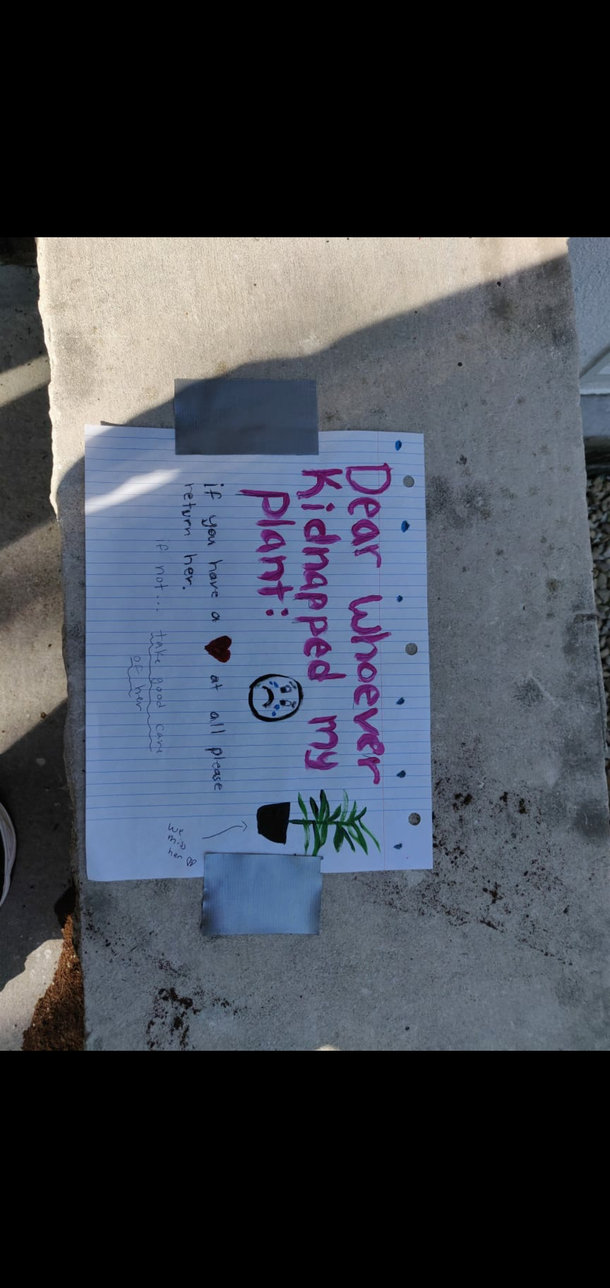 Dear Whoever
Kidnapped my
plant:
if you have a at all please
return her.
if not... take good care
of her
We miss
her